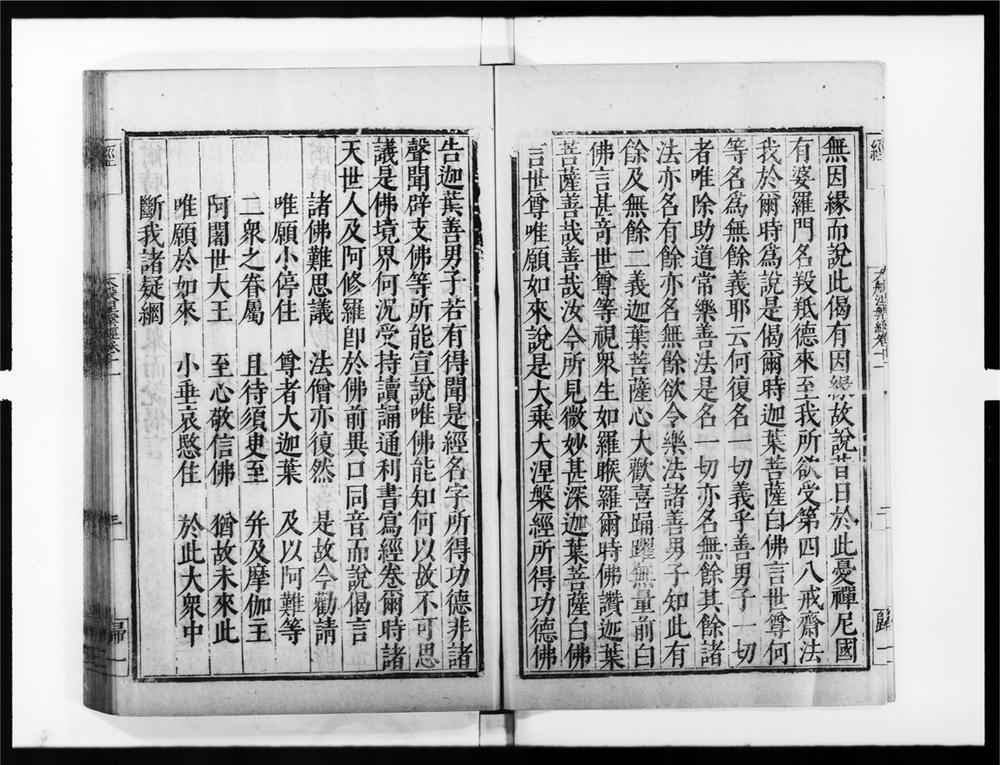 無因緣而說此偈有因緣故說昔日於此憂禪尼國
有婆羅門名羖羝德來至我所欲受第四八戒齋法
我於爾時為說是偈爾時迦葉菩薩白佛言世尊何
等名為無餘義耶云何復名一切義乎善男子一切
者唯除助道常樂善法是名一切亦名無餘其餘諸
法亦名有餘亦名無餘欲令樂法諸善男子知此有
餘及無餘二義迦葉菩薩心大歡喜踊躍無量前白
佛言甚奇世尊等視眾生如羅睺羅爾時佛讚迦葉
菩薩善哉善哉汝今所見微妙甚深迦葉菩薩白佛
言世尊唯願如來說是大乘大涅槃經所得功德佛
告迦葉善男子若有得聞是經名字所得功德非諸
聲聞辟支佛等所能宣說唯佛能知何以故不可思
議是佛境界何況受持讀誦通利書寫經卷爾時諸
天世人及阿修羅即於佛前異口同音而說偈言
諸佛難思議 法僧亦復然 是故今勸請
唯願小停住 尊者大迦葉 及以阿難等
二眾之眷屬 且待須臾至 并及摩伽王
阿闍世大王 至心敬信佛 猶故未來此
唯願於如來 小垂哀愍住 於此大眾中
斷我諸疑網